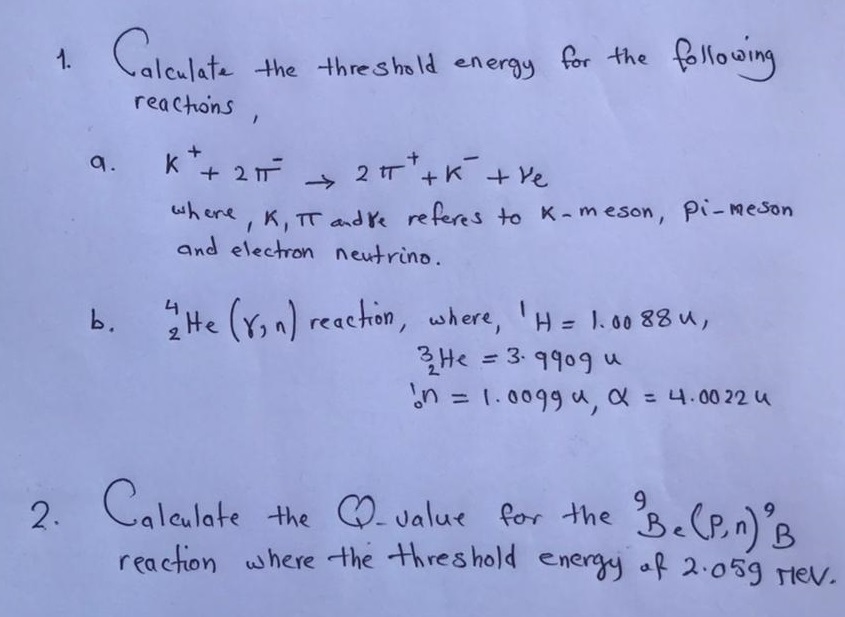 1. Calculate the threshold energy for the following
reactions,
a. K⁺ + 2π⁻ → 2π⁺ + K⁻ + νe
where, K, π and νe referes to K-meson, Pi-meson
and electron neutrino.
b. ⁴₂He (γ, n) reaction, where, ¹H = 1.0088 u,
³₂He = 3.9909 u
¹₀n = 1.0099 u, α = 4.0022 u
2. Calculate the Q-value for the ⁹Be(P,n)⁹B
reaction where the threshold energy of 2.059 MeV.